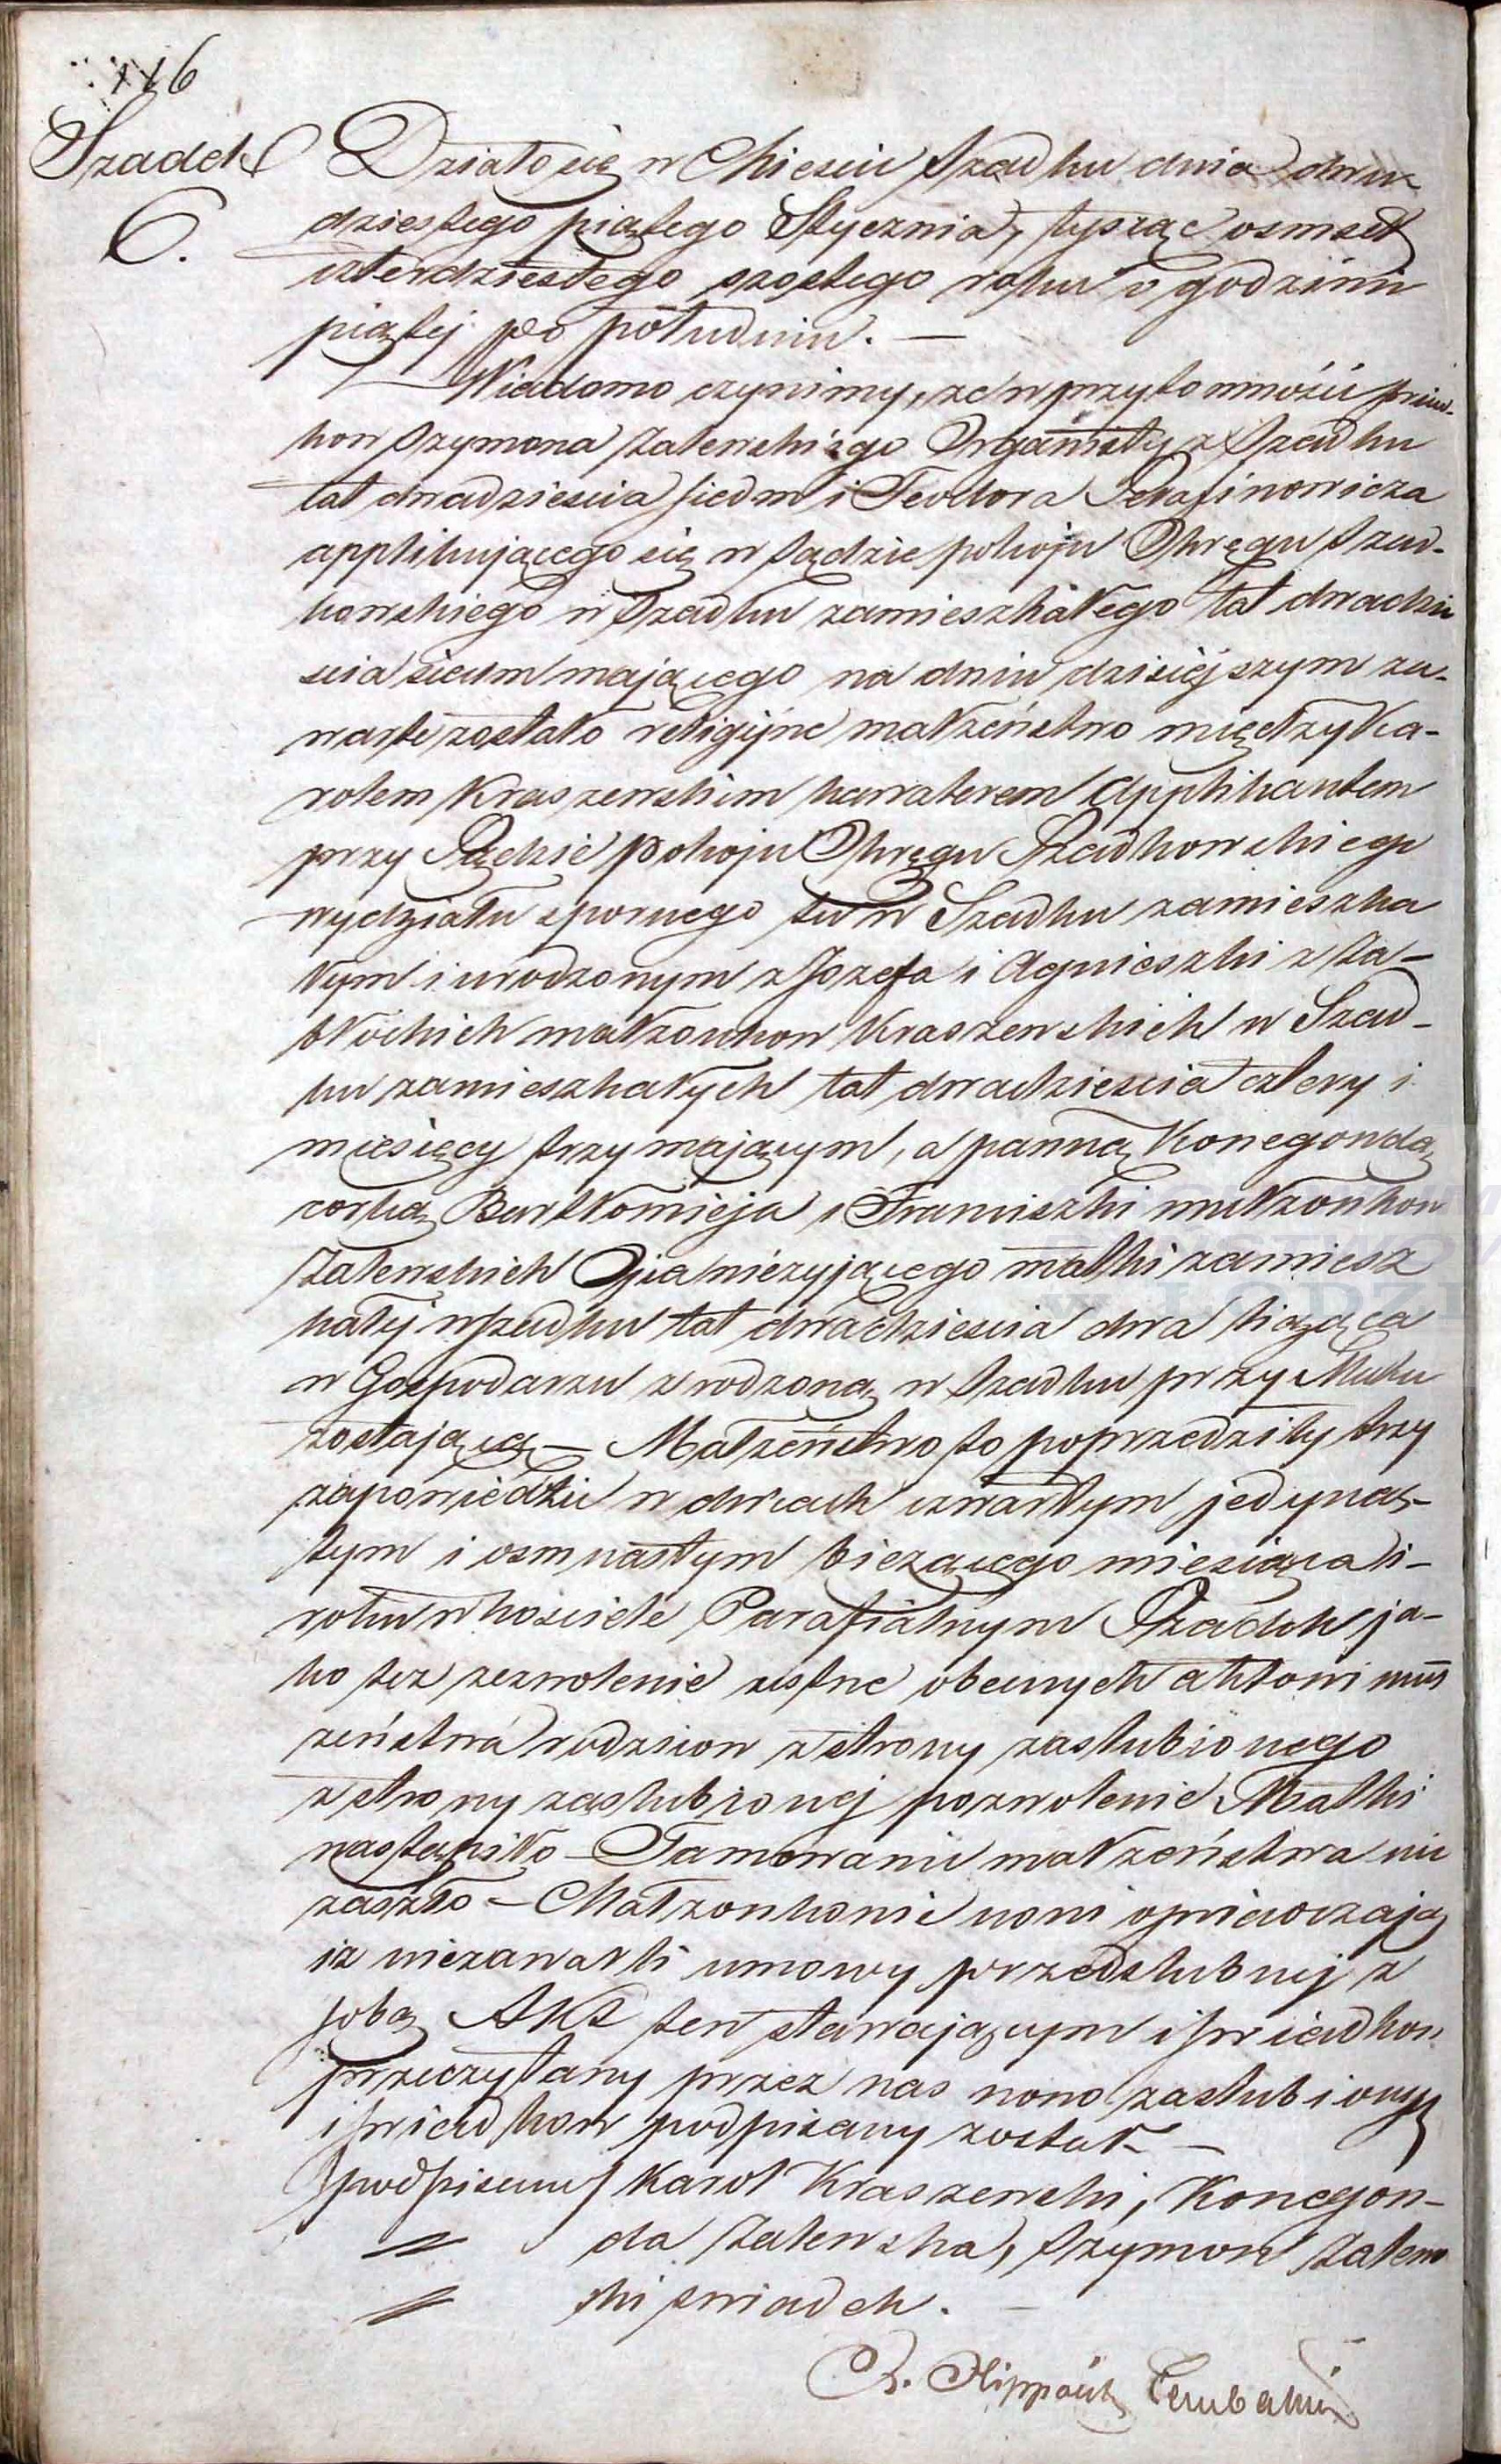 116
Szadek
6.
Działo się w Mieście Szadku dnia dwu-
dziestego piątego Stycznia, tysiąc osmset
czterdziestego szostego roku o godzinie
piątej po południu. —
Wiadomo czynimy, że w przytomności świad-
kow Szymona Zalewskiego Organisty z Szadku
lat dwadzieścia siedm i Teodora Serafinowicza
applikującego się w Sądzie pokoju Okręgu Szad-
kowskiego w Szadku zamieszkałego lat dwadzie
scia siedm mającego na dniu dzisiejszym za-
warte zostało religijne małżeństwo między Ka-
rolem Kraszewskim kawalerem Applikantem
przy Sądzie pokoju Okręgu Szadkowskiego
wydziału spornego tu w Szadku zamieszka
łym i urodzonym z Jozefa i Agnieszki z
małżonkow Kraszewskich w Szad-
ku zamieszkałych lat dwadzieścia cztery i
miesięcy trzy mającym, a panną Konegondą
corką Bartłomieja i Franciszki małżonkow
Zalewskich Ojca nieżyjącego matki zamiesz
kałej w Szadku lat dwadzieścia dwa liczącą
w Gospodarzu zrodzoną w Szadku przy Matce
zostającą — Małżeństwo to poprzedziły trzy
zapowiedzie w dniach czwartym jedynas-
tym i osmnastym bieżącego miesiąca i
roku w kościele Parafialnym Szadek ja-
ko też zezwolenie ustne obecnych aktowi mał
żeństwa rodzicow z strony zaślubionego
z strony zaślubionej pozwolenie Matki
nastąpiło — Tamowanie małżeństwa nie
zaszło — Małżonkowie nowi oświadczają
iż niezawarli umowy przedślubnej z
sobą Akt ten stawającym i świadkom
przeczytany przez nas nowo zaślubionych
i świadkow podpisany został —
podpisano) Karol Kraszewski, Konegon-
〃 da Zalewska, Szymon Zalew
〃 ski świadek. —
X. Hippolit